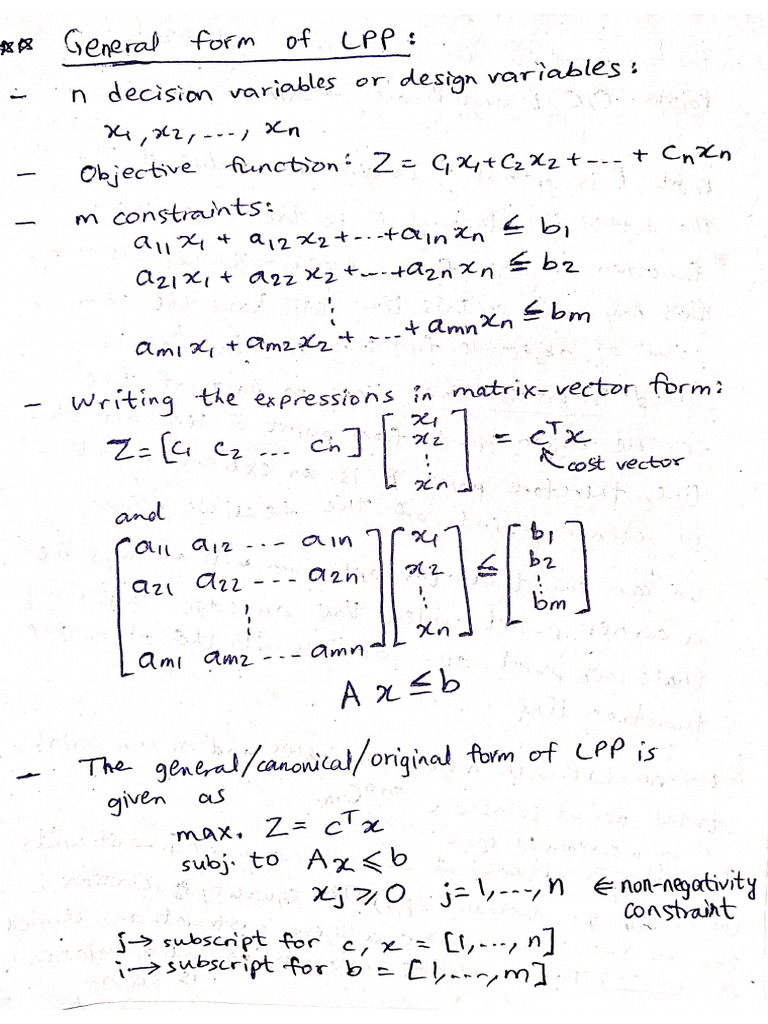 ** General form of LPP:
- n decision variables or design variables:
x1, x2, ..., xn
- Objective function: Z = c1x1 + c2x2 + --- + cnxn
- m constraints:
a11x1 + a12x2 + --- + a1nxn ≤ b1
a21x1 + a22x2 + --- + a2nxn ≤ b2
⋮
am1x1 + am2x2 + --- + amnxn ≤ bm
- Writing the expressions in matrix-vector form:
Z = [c1 c2 ... cn] [x1 x2 ⋮ xn] = cᵀx
↖ cost vector
and
[a11 a12 --- a1n] [x1] ≤ [b1]
[a21 a22 --- a2n] [x2] [b2]
⋮ ⋮ ⋮
[am1 am2 --- amn] [xn] [bm]
A x ≤ b
- The general/canonical/original form of LPP is
given as
max. Z = cᵀx
subj. to Ax ≤ b
xj ≥ 0 j = 1, ---, n ⇐ non-negativity
constraint
j → subscript for c, x = [1, ---, n]
i → subscript for b = [1, ---, m]